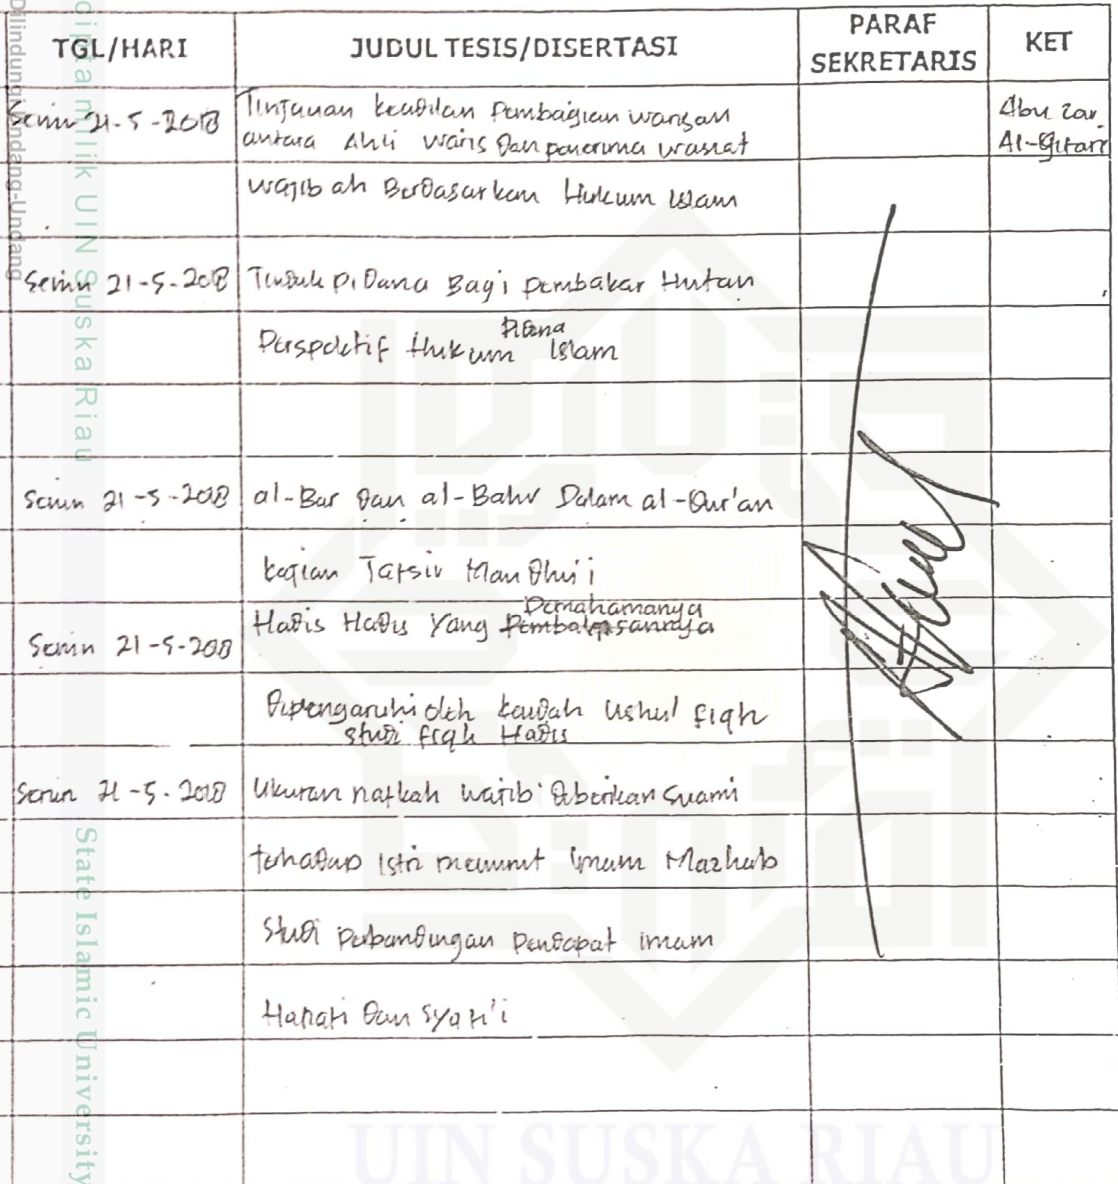 TGL/HARI JUDUL TESIS/DISERTASI PARAF SEKRETARIS KET
Senin 21-5-2018 Tinjauan keadilan Pembagian warisan Abu Zar
antara Ahli waris Dan penerima wasiat Al-Gifari
wajibah Berdasarkan Hukum Islam
Senin 21-5-2018 Tindak Pidana Bagi pembakar Hutan
Pidana
Perspektif Hukum Islam
Senin 21-5-2018 al-Bar dan al-Bahr Dalam al-Qur'an
kajian Tafsir Maudhu'i
Pemahamanya
Hadis Hadis Yang
Senin 21-5-2018
Dipengaruhi oleh kaidah Ushul fiqh
studi fiqh Hadis
Senin 21-5-2018 Ukuran nafkah wajib diberikan Suami
terhadap Istri menurut Imam Mazhab
Studi perbandingan Pendapat imam
Hanafi Dan Syafi'i
Dilindungi Undang-Undang
cipta milik UIN Suska Riau
State Islamic University
UIN SUSKA RIAU